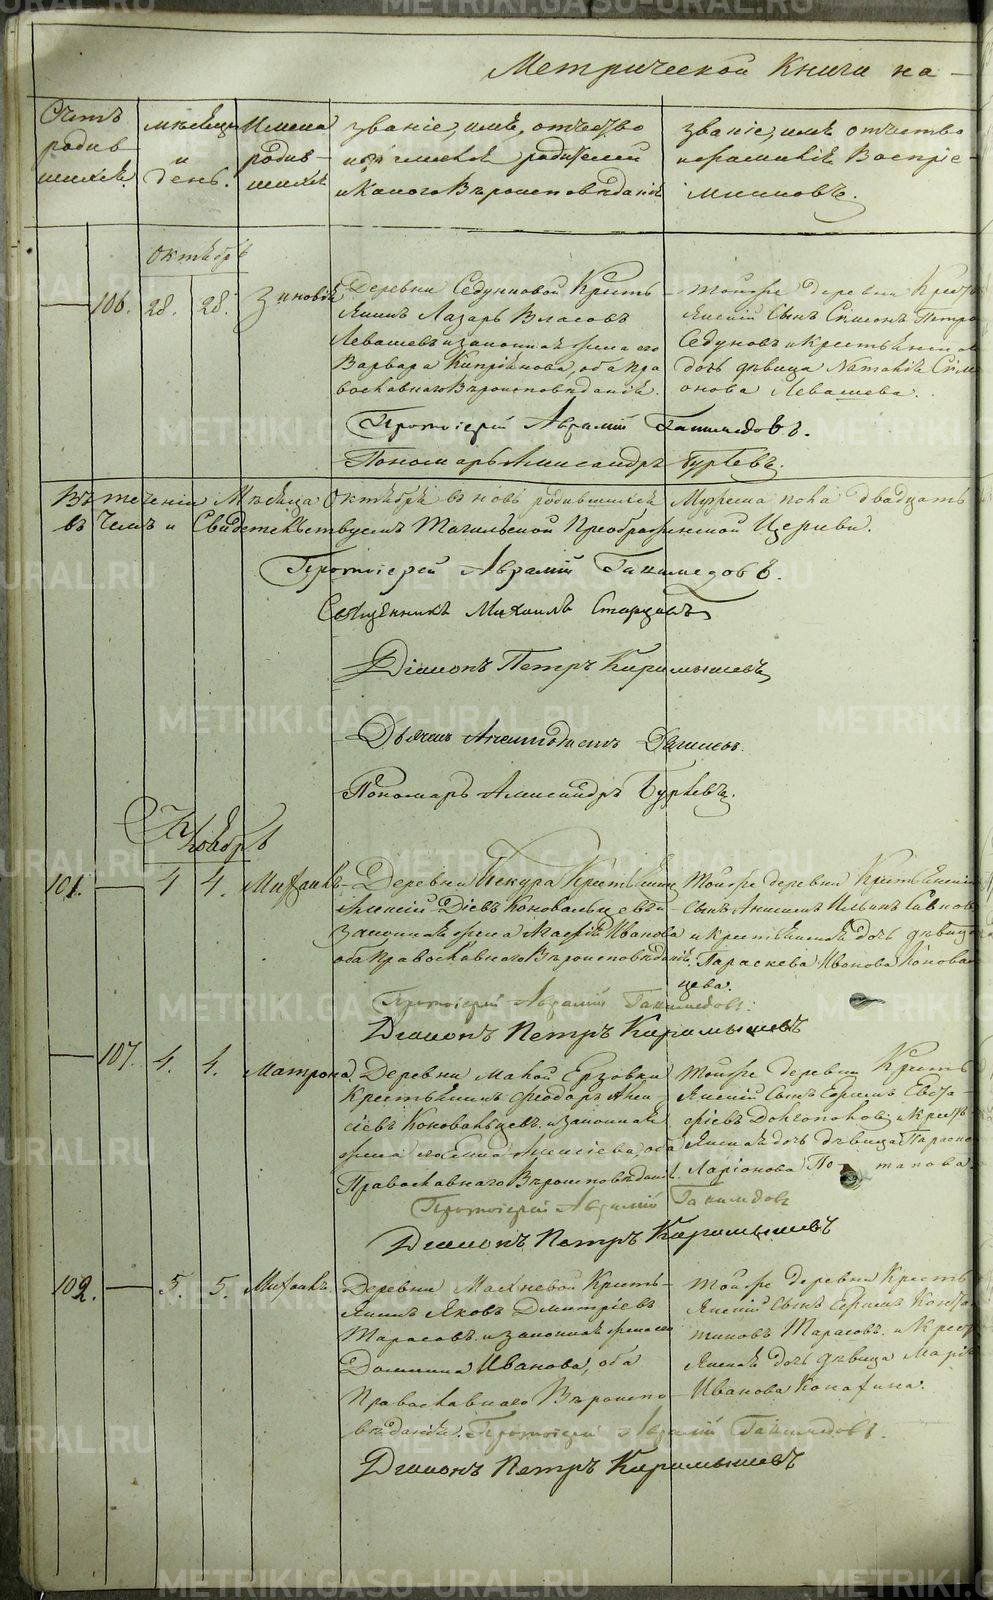 Метрической Книги на —
Счетъ родив шихся.
Мѣсяцъ и день.
Имена родив– шихся
званіе, имя, отчество
и фамилія родителей
и какого Вѣроисповѣданія
званіе, имя отчество
и фамилія Воспріе–
мниковъ.
Октябрь
— 106. 28. 28. Зиновія
Деревни Седунковой Кресть–
янинъ Лазарь Власовъ
Левашевъ и законная жена его
Варвара Кипріянова, оба пра
вославнаго Вѣроисповѣданія.
Тойже деревни Кресть
янскій Сынъ Симеонъ Петро
Седуновъ и крестьянская
дочь дѣвица Наталія Сим
онова Левашева.
Протоіерей Аврамій Ганимедовъ.
Пономарь Александръ Бурѣевъ.
Въ теченіи Мѣсяца Октября въ новь родившихся Мужеска пола двадцать
въ Чемъ и Свидетельствуемъ Тагильской Преображенской Церкви.
Протоіерей Аврамій Ганимедовъ.
Священникъ Михаилъ Старцовъ
Діаконъ Петръ Карамышевъ
Дьячекъ
Пономарь Александръ Бурѣевъ.
Ноябрь
101. — 4 4. Михаилъ
Деревни Пекура Крестьянинъ
Алексій Діевъ Коновальцевъ и
законная жена Агафія Иванова
оба Православнаго Вѣроисповѣданія.
Тойже деревни Крестьянскій
сынъ Анисимъ Ильинъ
и крестьянская дочь дѣвица
Параскева Иванова Коновал
цева.
Протоіерей Аврамій Ганимедовъ.
Діаконъ Петръ Карамышевъ
— 107. 4. 4. Матрона.
Деревни Малой Ерзовки
Крестьянинъ Феодоръ Алек
сіевъ Коновальцевъ и законная
жена Алексіева, оба
Православнаго Вѣроисповѣданія.
Тойже деревни Кресть
янскій Сынъ Ефимъ
Долгополовъ и Крест
янская дочь дѣвица Параске
Ларіонова По– тапова.
Протоіерей Аврамій Ганимедовъ
Діаконъ Петръ Карамышевъ
102. — 5. 5. Михаилъ.
Деревни Махневой Кресть–
янинъ Яковъ Дмитріевъ
Тарасовъ и законная жена его
Домника Иванова, оба
Православнаго Вѣроиспо–
вѣданія.
Тойже деревни Кресть
янскій сынъ Ефимъ Конста
тиновъ Тарасовъ и Крест
янская дочь дѣвица Марія
Иванова Копалина.
Протоіерей Аврамій Ганимедовъ.
Діаконъ Петръ Карамышевъ
METRIKI.GASO-URAL.RU